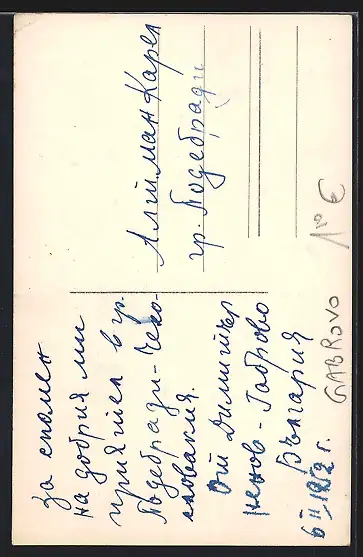 За спомен
на добрия ми
приятел в гр.
Подебради - Чехо-
словакия.
От Димитър
Ненов - Габрово
България
6 II 1952 г.
Алтман Карел
гр. Подебради
GABROVO